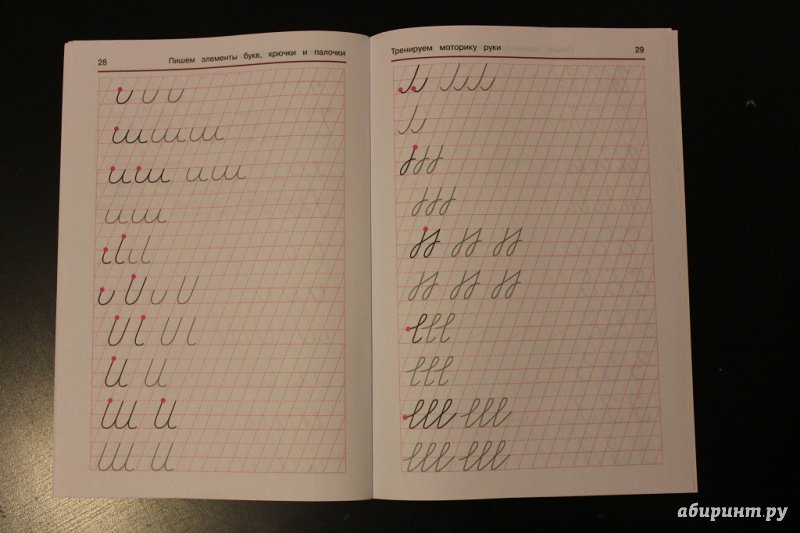 28 Пишем элементы букв, крючки и палочки
Тренируем моторику руки 29
абиринт.ру